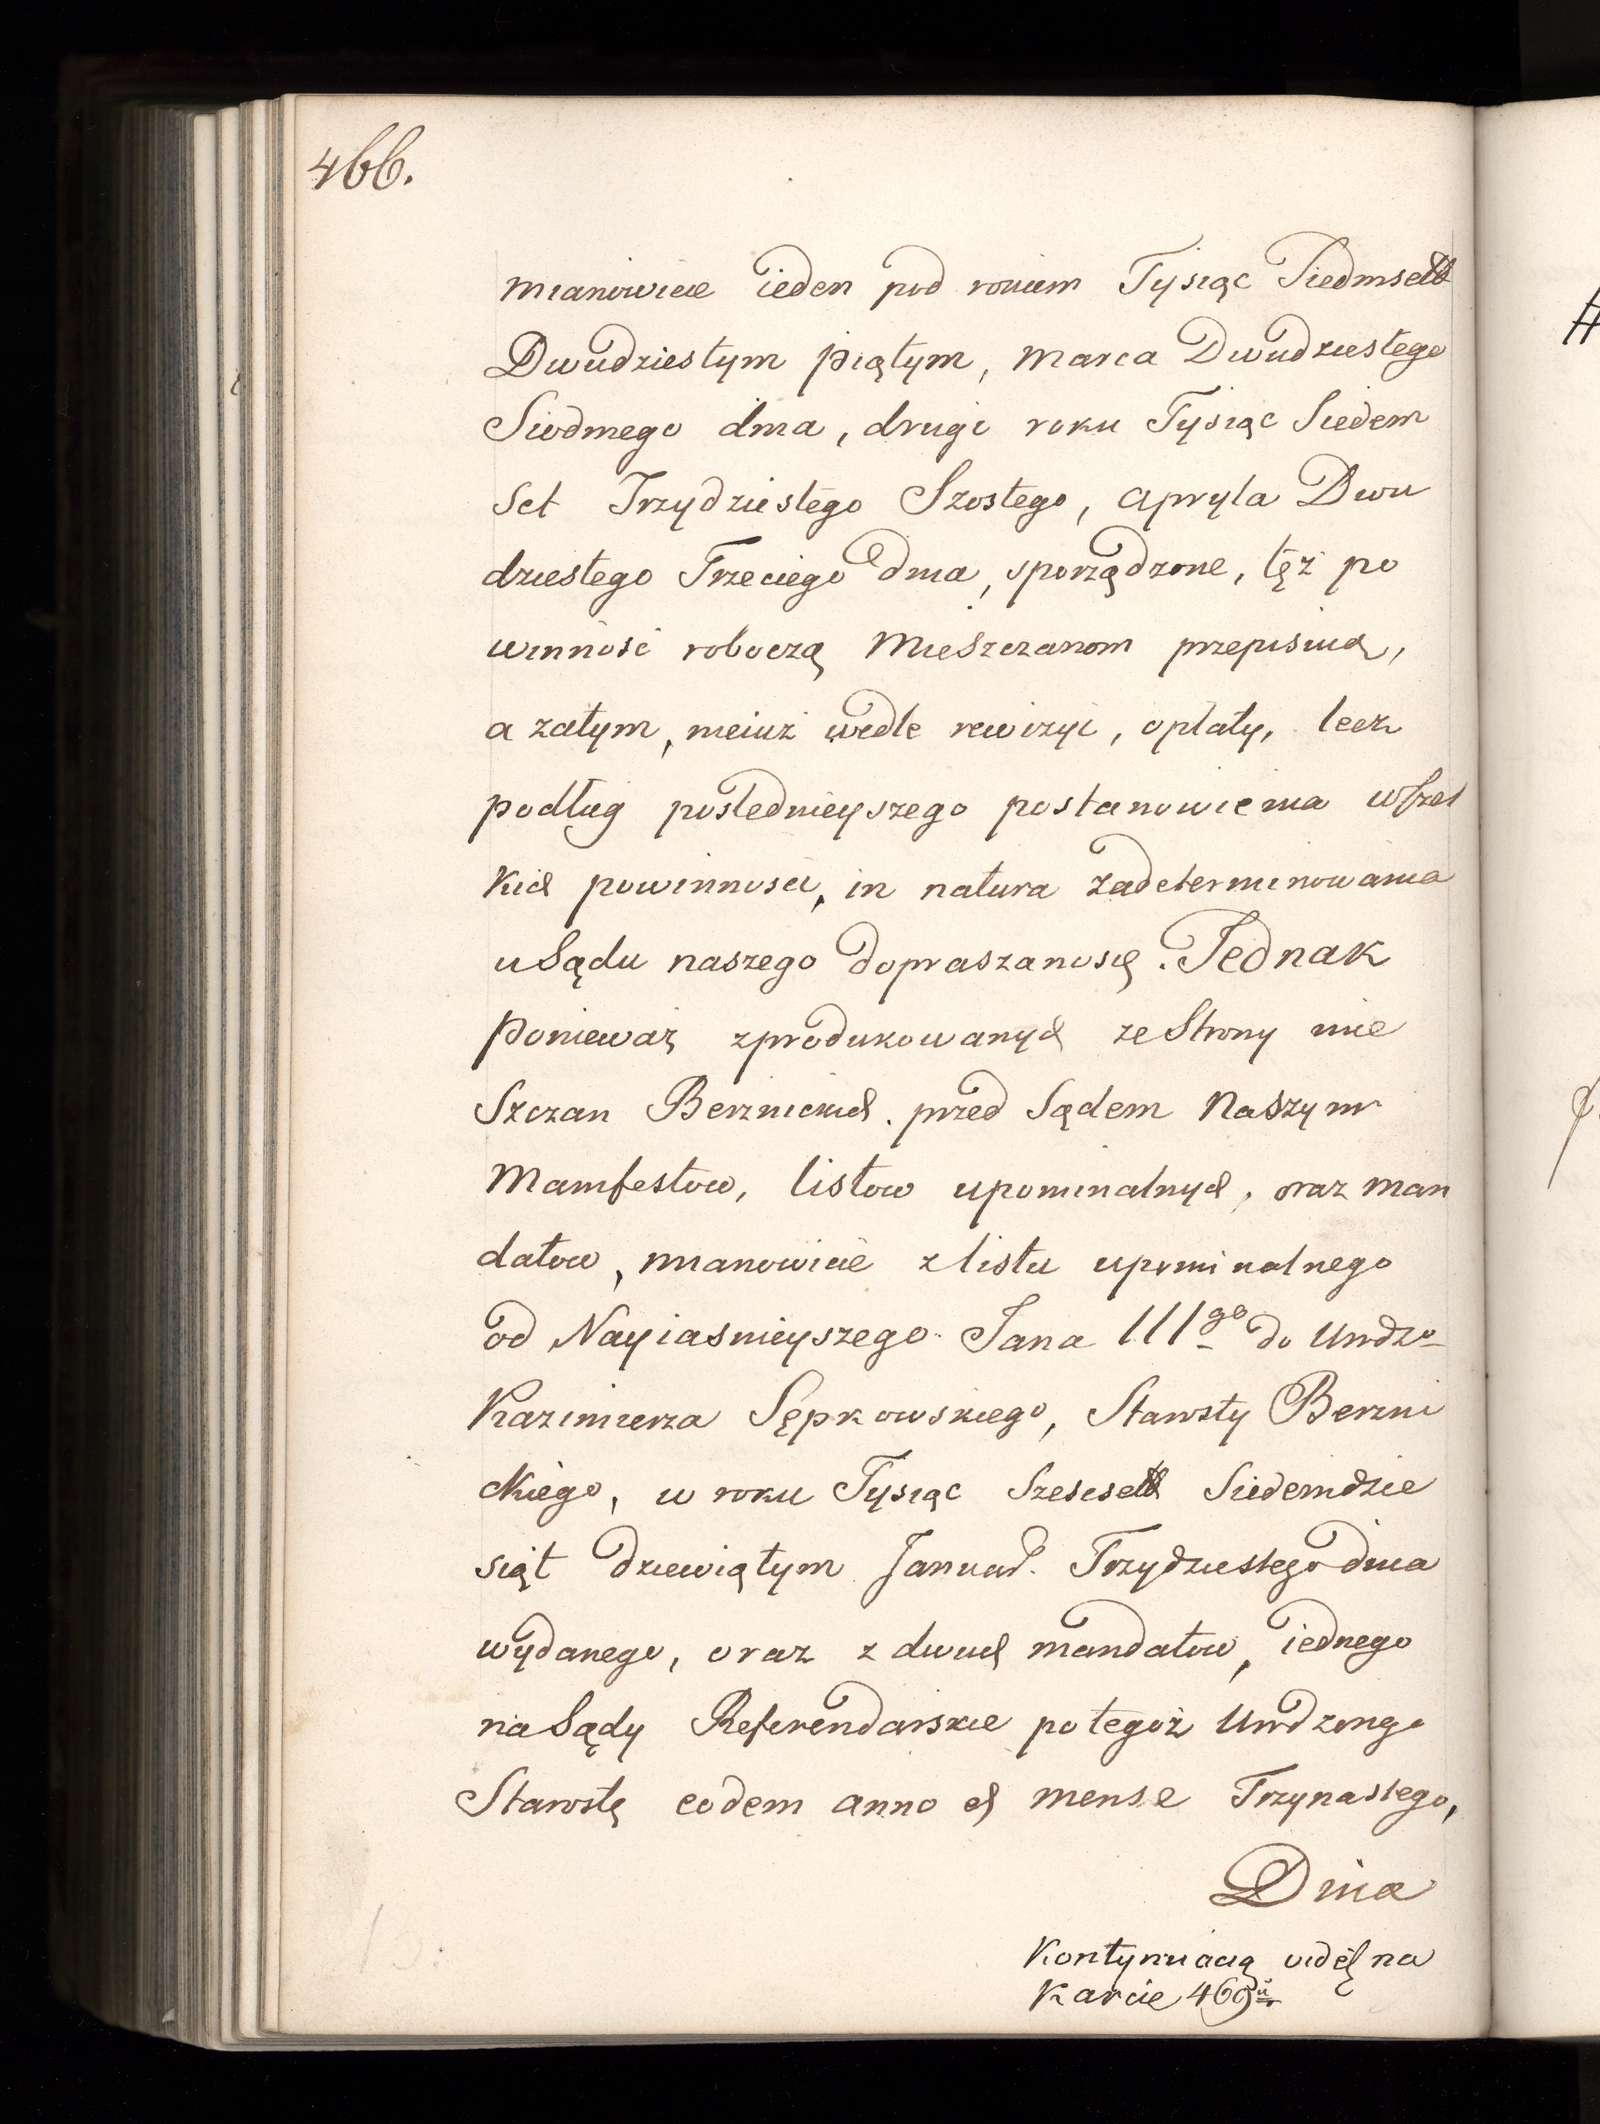 466.
mianowicie ieden pod rokiem Tysiąc Siedmset
Dwudziestym piątym, marca Dwudziestego
Siodmego dnia, drugi roku Tysiąc Siedem
set Trzydziestego Szostego, apryla Dwu
dziestego Trzeciego dnia, sporządzone, tęż po
winność roboczą Mieszczanom przepisuią,
a zatym, nieiuż wedle rewizyi, opłaty, lecz
podług poslednieyszego postanowienia wszel
kich powinnosci, in natura zadeterminowania
u Sądu naszego dopraszanosię. Jednak
ponieważ zprodukowanych ze Strony mie
szczan Berznickich przed Sądem naszym
Manifestow, listow upominalnych, oraz man
datow, mianowicie z listu upominalnego
od Nayiasnieyszego Jana III go do Urodzo-
Kazimierza Sępkowskiego, Starosty Berzni
ckiego, w roku Tysiąc Szescset Siedemdzie
siąt dziewiątym Januar. Trzydziestego dnia
wydanego, oraz z dwuch mandatow, iednego
na Sądy Referendarskie po tegoż Urodzongo
Starostę eodem anno et mense Trzynastego,
Dnia
Kontynuacią na
Karcie 469